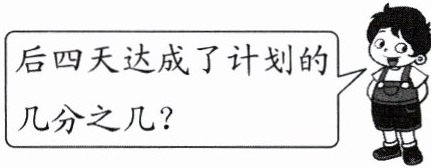 后四天达成了计划的
几分之几？